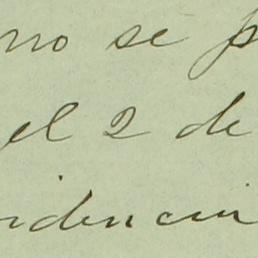 no se p
el 2 de
idencia